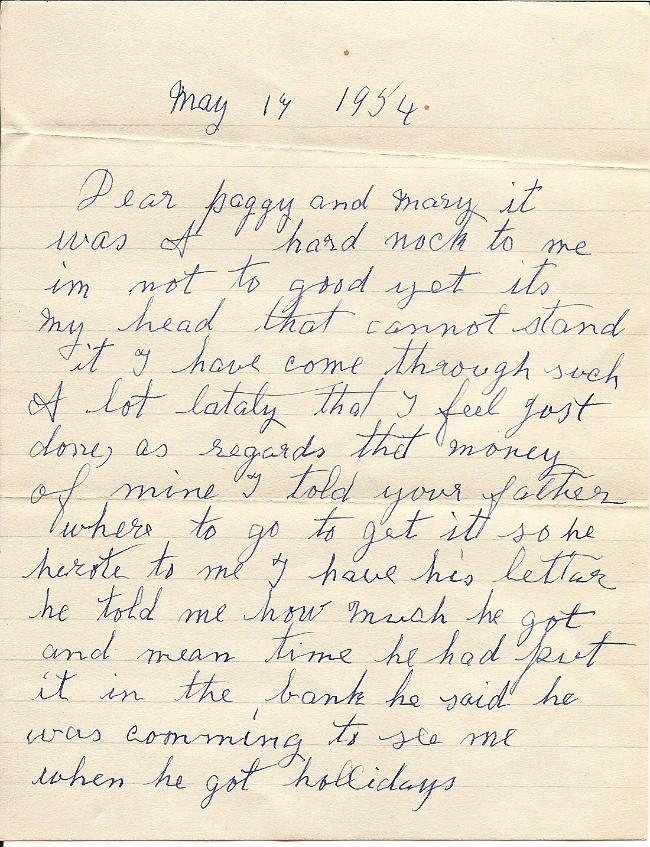 May 14 1954.
Dear paggy and mary it
was A hard nock to me
im not to good yet its
my head that cannot stand
it I have come through such
A lot lataly that I feel just
done, as regards that money
of mine I told your father
where to go to get it so he
herote to me I have his lettar
he told me how much he got
and mean time he had put
it in the bank he said he
was comming to see me
when he got hollidays